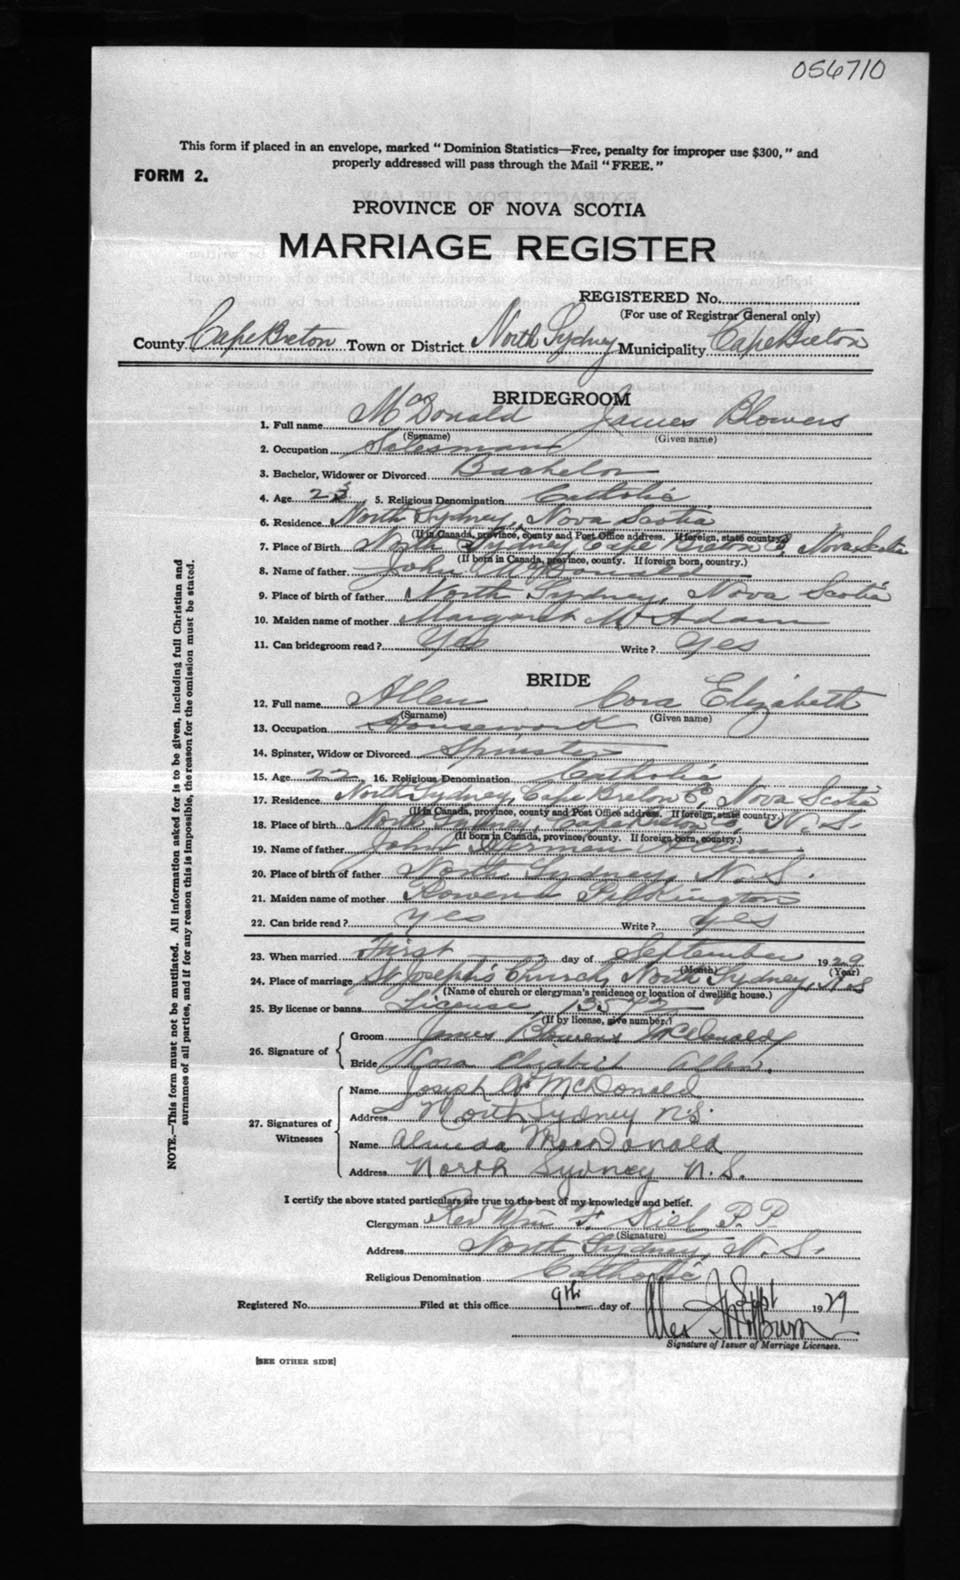 056710
This form if placed in an envelope, marked "Dominion Statistics—Free, penalty for improper use $300," and
properly addressed will pass through the Mail "FREE."
FORM 2.
PROVINCE OF NOVA SCOTIA
MARRIAGE REGISTER
REGISTERED No.
(For use of Registrar General only)
County Cape Breton Town or District North Sydney Municipality Cape Breton
BRIDEGROOM
1. Full name McDonald James Blowers
(Surname) (Given name)
2. Occupation Salesman
3. Bachelor, Widower or Divorced Bachelor
4. Age 23 5. Religious Denomination Catholic
6. Residence North Sydney, Nova Scotia
(If in Canada, province, county and Post Office address. If foreign, state country.)
7. Place of Birth North Sydney, Cape Breton Co, Nova Scotia
(If born in Canada, province, county. If foreign born, country.)
8. Name of father John McDonald
9. Place of birth of father North Sydney, Nova Scotia
10. Maiden name of mother Margaret McAdam
11. Can bridegroom read? Yes Write? Yes
BRIDE
12. Full name Allen Cora Elizabeth
(Surname) (Given name)
13. Occupation Housework
14. Spinster, Widow or Divorced Spinster
15. Age 22 16. Religious Denomination Catholic
17. Residence North Sydney, Cape Breton Co, Nova Scotia
(If in Canada, province, county and Post Office address. If foreign, state country.)
18. Place of birth North Sydney, Cape Breton Co, N.S.
(If born in Canada, province, county. If foreign born, country.)
19. Name of father John Allen
20. Place of birth of father North Sydney, N.S.
21. Maiden name of mother Rowena Pilkington
22. Can bride read? yes Write? yes
23. When married First day of September 1929
(Month) (Year)
24. Place of marriage St Joseph's Church, North Sydney, N.S
(Name of church or clergyman's residence or location of dwelling house.)
25. By license or banns License
(If by license, give number.)
26. Signature of
Groom James Blowers McDonald
Bride Cora Elizabeth Allen.
27. Signatures of
Witnesses
Name Joseph McDonald
Address North Sydney N.S.
Name MacDonald
Address North Sydney N.S.
I certify the above stated particulars are true to the best of my knowledge and belief.
Clergyman Rev Wm F. P.P.
(Signature)
Address North Sydney, N.S.
Religious Denomination Catholic
Registered No. Filed at this office 9th day of Sept 1929
Alex
Signature of Issuer of Marriage Licenses.
[SEE OTHER SIDE]
NOTE.—This form must not be mutilated. All information asked for is to be given, including full Christian and
surnames of all parties, and if for any reason this is impossible, the reason for the omission must be stated.